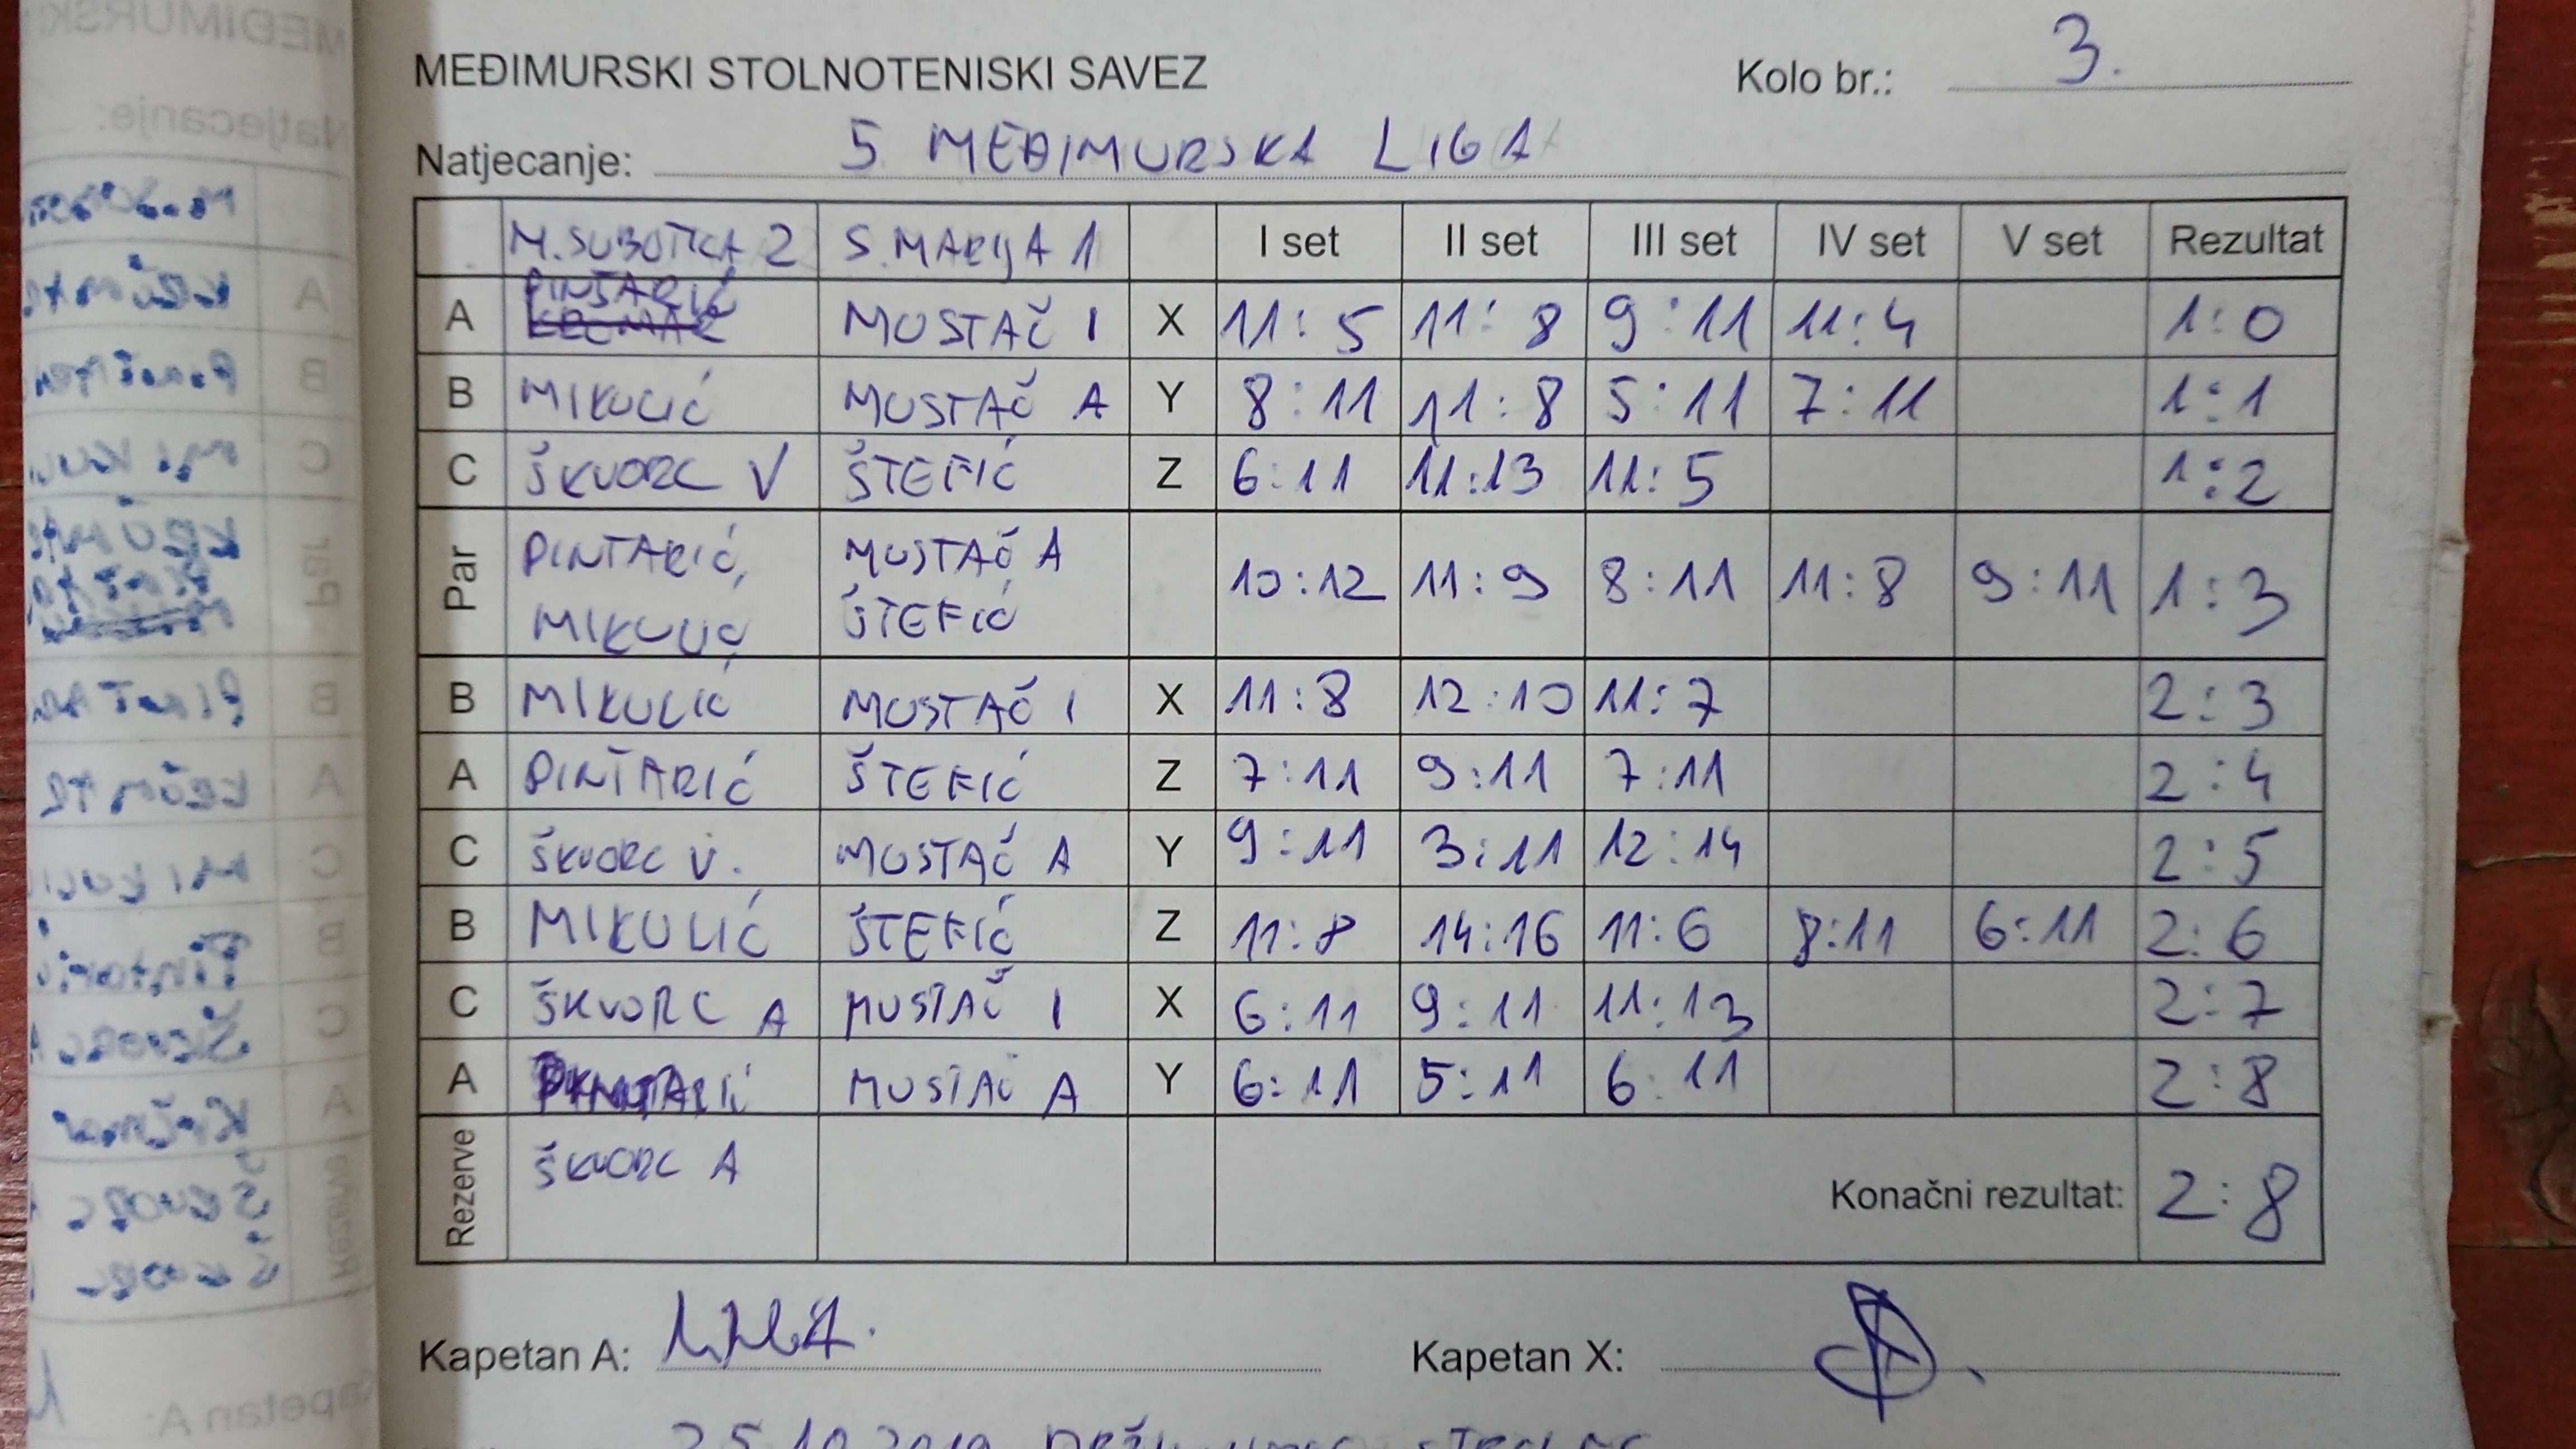 MEĐIMURSKI STOLNOTENISKI SAVEZ Kolo br.: 3.
Natjecanje: 5 MEĐIMURSKA LIGA
M. SUBOTICA 2 S. MARIJA 1 I set II set III set IV set V set Rezultat
A PINTARIĆ MUSTAČ I X 11:5 11:8 9:11 11:4 1:0
B MIKULIĆ MUSTAČ A Y 8:11 11:8 5:11 7:11 1:1
C ŠKVORC V ŠTEFIĆ Z 6:11 11:13 11:5 1:2
Par PINTARIĆ, MUSTAČ A 10:12 11:9 8:11 11:8 9:11 1:3
MIKULIĆ ŠTEFIĆ
B MIKULIĆ MUSTAČ I X 11:8 12:10 11:7 2:3
A PINTARIĆ ŠTEFIĆ Z 7:11 9:11 7:11 2:4
C ŠKVORC V. MUSTAČ A Y 9:11 3:11 12:14 2:5
B MIKULIĆ ŠTEFIĆ Z 11:8 14:16 11:6 8:11 6:11 2:6
C ŠKVORC A MUSTAČ I X 6:11 9:11 11:13 2:7
A PINTARIĆ MUSTAČ A Y 6:11 5:11 6:11 2:8
Rezerve ŠKVORC A Konačni rezultat: 2:8
Kapetan A: Kapetan X: